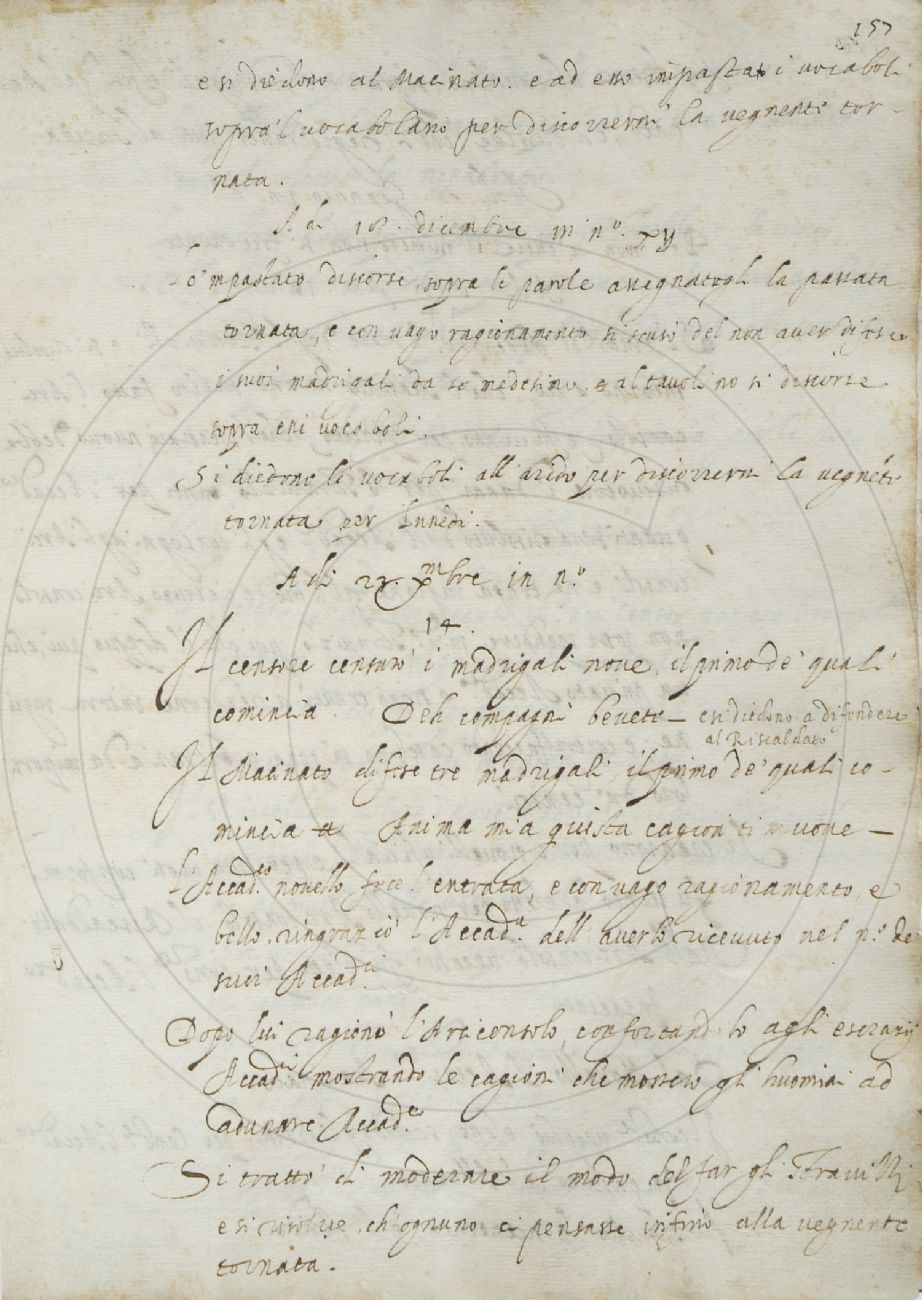 157
e si diedono al Macinato. e ad esso impastato i vocaboli
sopra 'l vocabolario per discorrervi la vegnente tor-
nata.
A di 18. dicembre in n.º xv
Lo 'mpastato discorse sopra le parole assegnatogli la passata
tornata, e con vago ragionamento si scusò del non aver difese
i suoi madrigali da se medesimo, e al tavolino si discorse
sopra essi vocaboli.
Si diedono li vocaboli all' arido per discorrervi la vegnẽte
tornata per lunedi.
A di Xmbre in n.º
14.
Il censore censurò i madrigali nove, il primo de quali
comincia. Deh compagni bevete— e si diedono a difendere
al Riscaldato
Il Macinato difese tre madrigali, il primo de' quali co-
mincia Anima mia questa cagion ti muove—
L'Accad.co novello fece l'entrata, e con vago ragionamento, e
bello, ringraziò l'Accad.a dell' averlo ricevuto nel n.º de
suoi Accad.ci
Dopo lui ragionò l'Arciconsolo, confortandolo agli esercizij
Accad.ci mostrando le cagioni che mossero gli huomini ad
adunare Accad.e
Si trattò di moderare il modo del far gli Stravizzi
e si risolve, ch' ognuno ci pensasse infino alla vegnente
tornata.